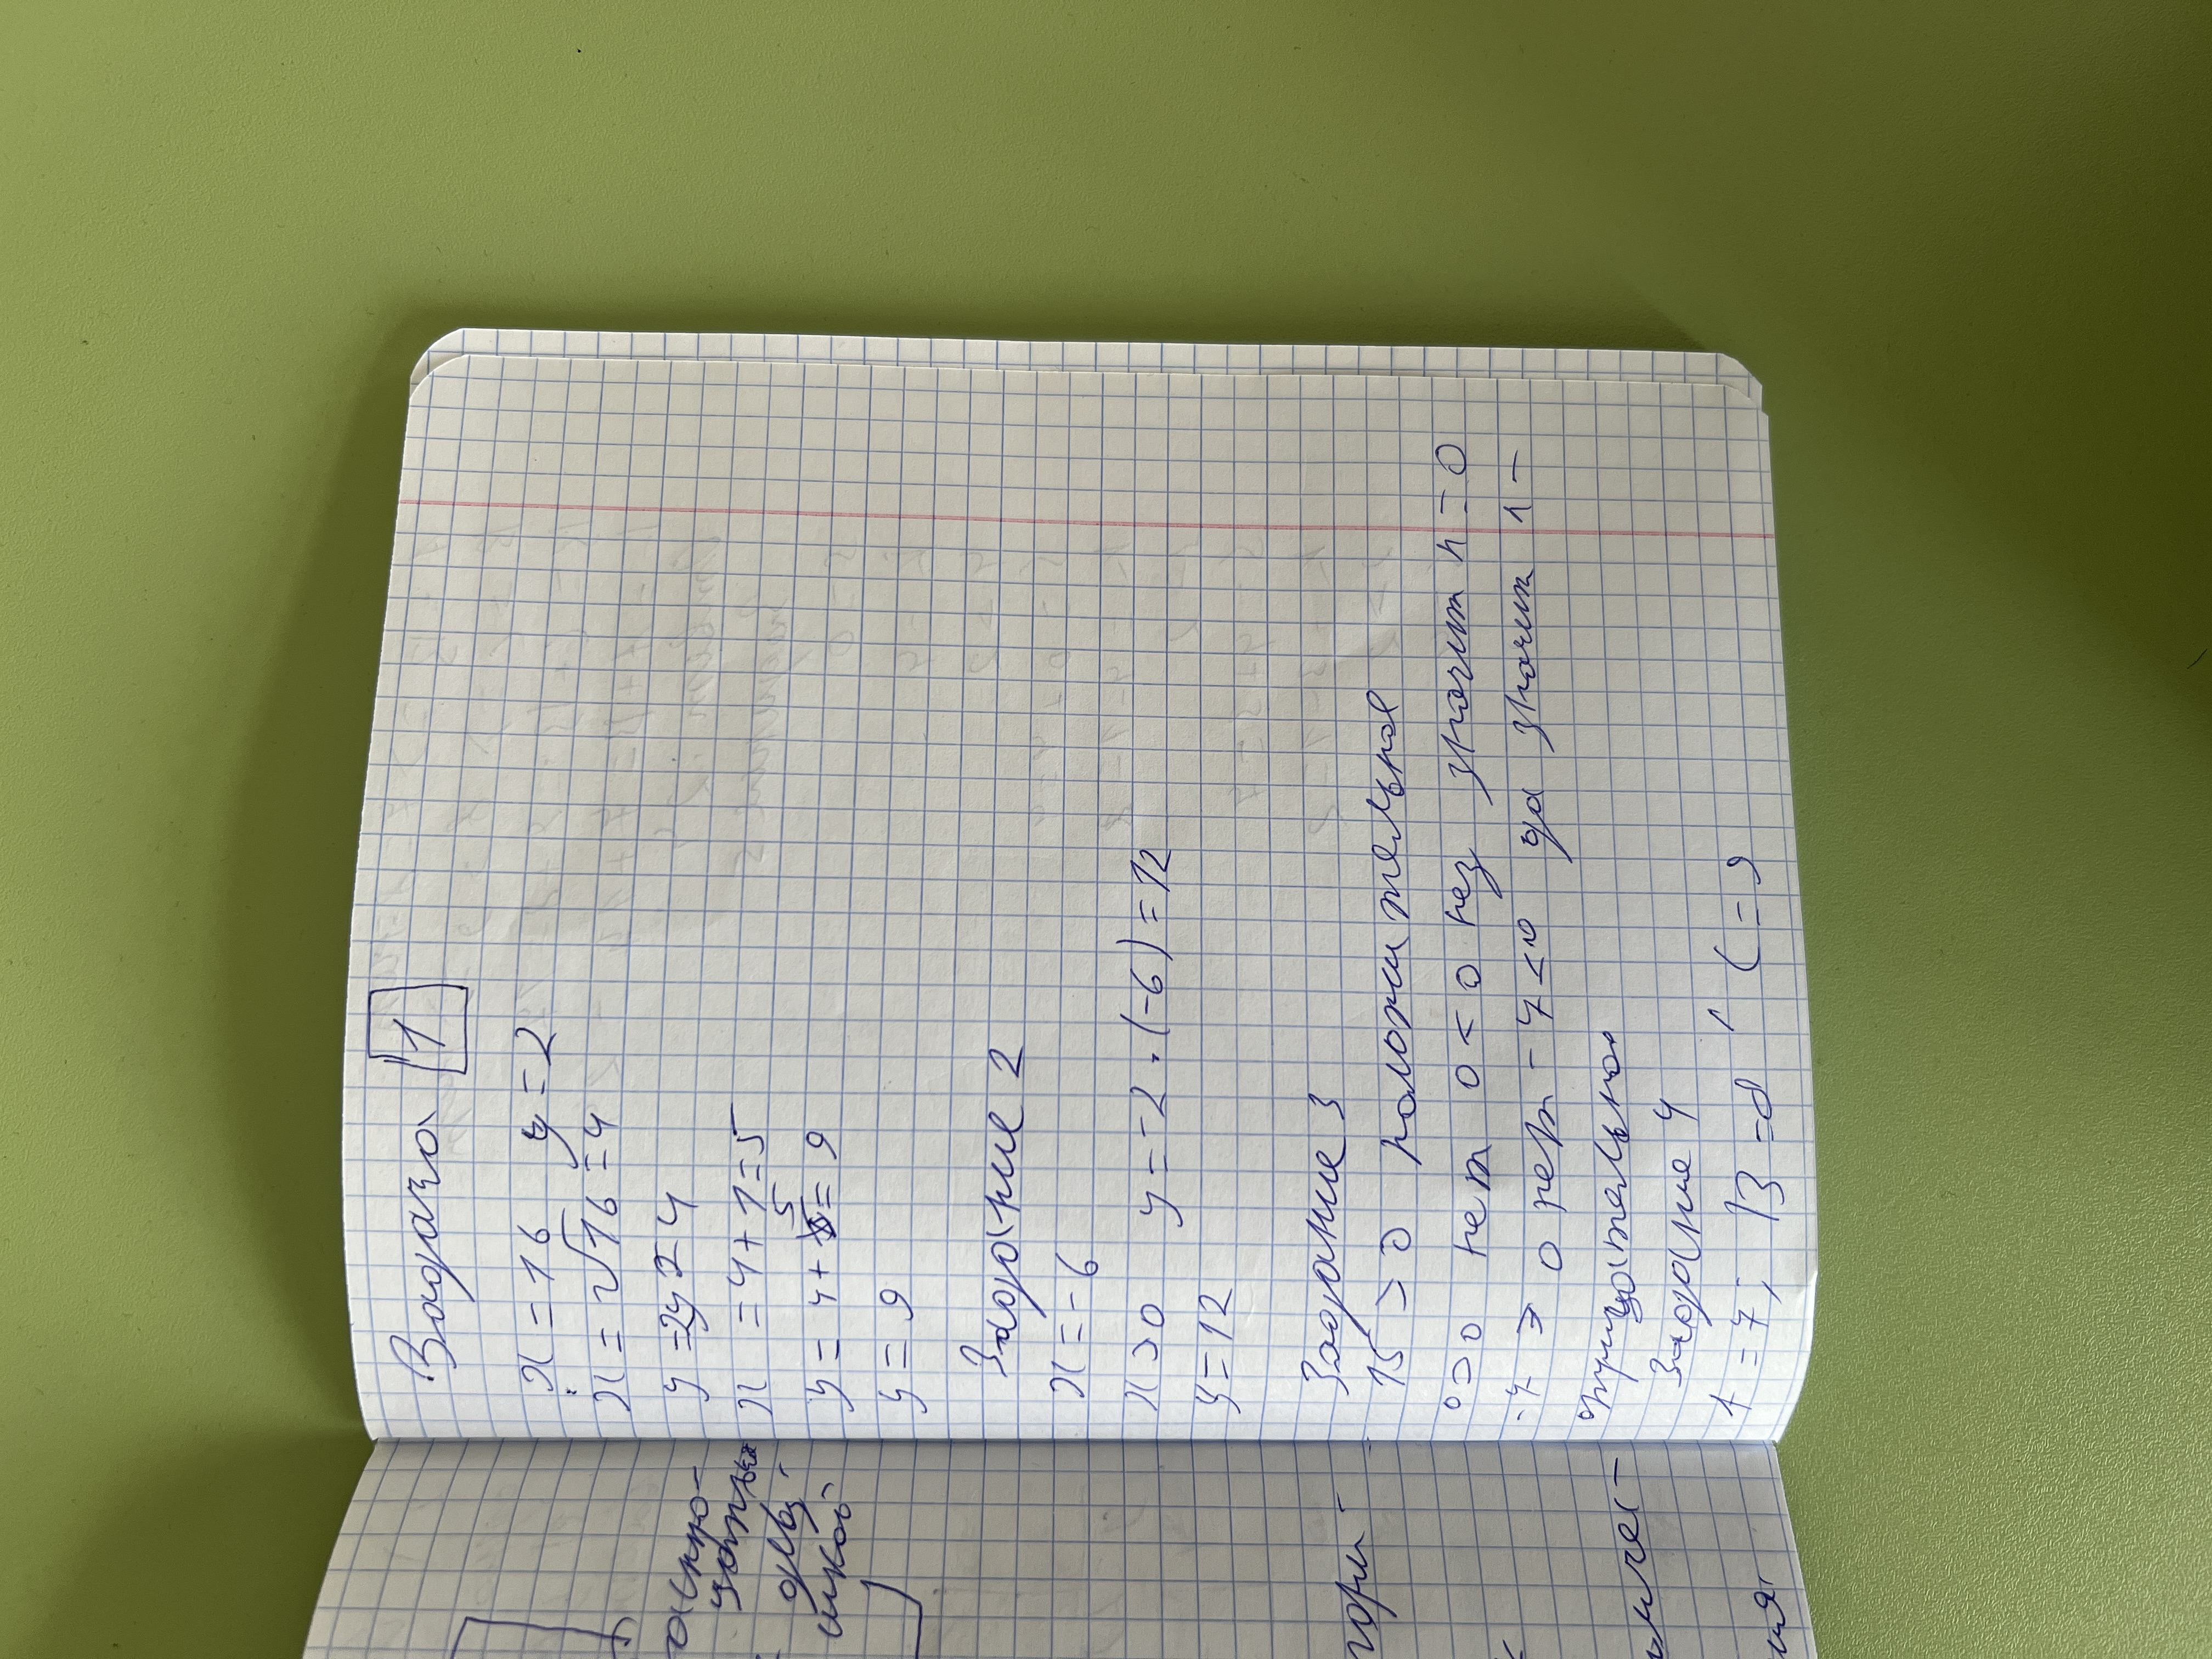 аспро-
цanье
девз-
шкой
гори-
Задача 1
x = 16 y = 2
x = √16 = 4
y = 2y = 4
x = 4 + 1 = 5
y = 4 + 5 = 9
y = 9
Задание 2
x = -6
x > 0 y = -2 · (-6) = 12
y = 12
Задание 3
15 > 0 положительное
0 > 0 нет 0 < 0 нез значит n = 0
-7 > 0 нет -7 < 0 да значит n -
отрицательное
Задание 4
A = 7; B = 8, C = 9